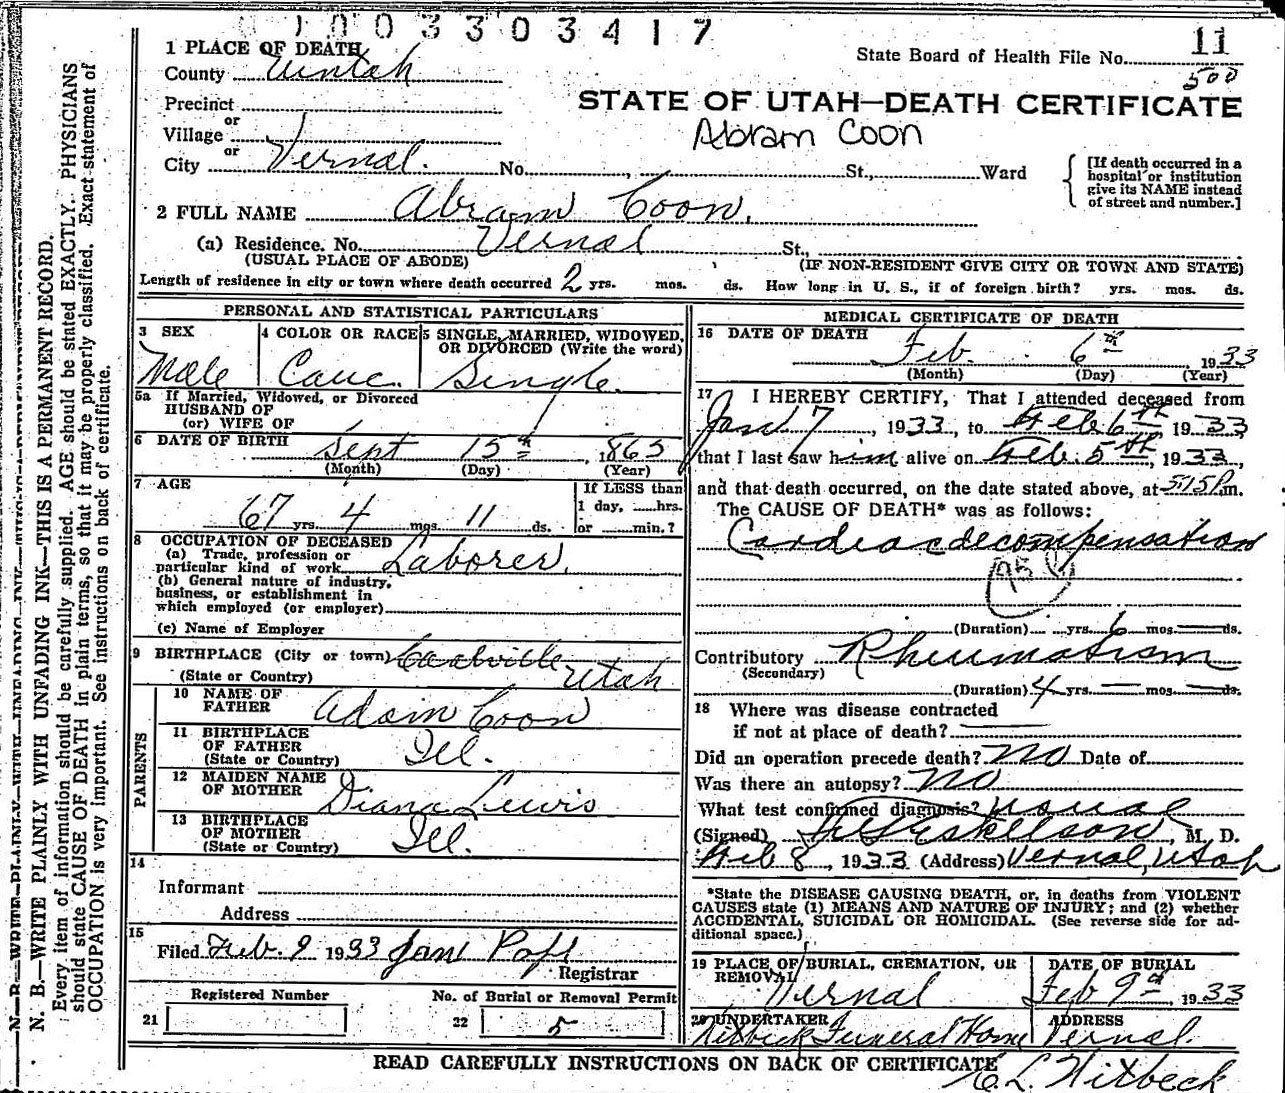 1003303417
11
State Board of Health File No.
500
1 PLACE OF DEATH
County Uintah
STATE OF UTAH—DEATH CERTIFICATE
Precinct
or
Village
Abram Coon
or
City Vernal. No. St., Ward
[If death occurred in a
hospital or institution
give its NAME instead
of street and number.]
2 FULL NAME Abram Coon.
(a) Residence. No. Vernal St.,
(USUAL PLACE OF ABODE) (IF NON-RESIDENT GIVE CITY OR TOWN AND STATE)
Length of residence in city or town where death occurred 2 yrs. mos. ds. How long in U. S., if of foreign birth? yrs. mos. ds.
PERSONAL AND STATISTICAL PARTICULARS
3 SEX
Male
4 COLOR OR RACE
Cauc.
5 SINGLE, MARRIED, WIDOWED,
OR DIVORCED (Write the word)
Single.
5a If Married, Widowed, or Divorced
HUSBAND OF
(or) WIFE OF
6 DATE OF BIRTH Sept 15th, 1865
(Month) (Day) (Year)
7 AGE
67 yrs. 4 mos. 11 ds.
If LESS than
1 day, hrs.
or min.?
8 OCCUPATION OF DECEASED
(a) Trade, profession or
particular kind of work Laborer.
(b) General nature of industry,
business, or establishment in
which employed (or employer)
(c) Name of Employer
9 BIRTHPLACE (City or town) Coalville
(State or Country) Utah
PARENTS
10 NAME OF
FATHER Adam Coon
11 BIRTHPLACE
OF FATHER Ill.
(State or Country)
12 MAIDEN NAME
OF MOTHER Diana Lewis
13 BIRTHPLACE
OF MOTHER Ill.
(State or Country)
14
Informant
Address
15
Filed Feb. 9 1933
Registrar
Registered Number
21
No. of Burial or Removal Permit
22 5
MEDICAL CERTIFICATE OF DEATH
16 DATE OF DEATH
Feb. 6th, 1933
(Month) (Day) (Year)
17 I HEREBY CERTIFY, That I attended deceased from
Jan 17, 1933, to Feb 6th, 1933,
that I last saw him alive on Feb. 5th, 1933,
and that death occurred, on the date stated above, at 515P m.
The CAUSE OF DEATH* was as follows:
Cardiac decompensation
95
(Duration) yrs. 6 mos. ds.
Contributory Rheumatism
(Secondary)
(Duration) 4 yrs. — mos. — ds.
18 Where was disease contracted
if not at place of death?
Did an operation precede death? no Date of
Was there an autopsy? no
What test confirmed diagnosis? usual
(Signed) , M. D.
Feb 8, 1933 (Address) Vernal, Utah
*State the DISEASE CAUSING DEATH, or, in deaths from VIOLENT
CAUSES state (1) MEANS AND NATURE OF INJURY; and (2) whether
ACCIDENTAL, SUICIDAL OR HOMICIDAL. (See reverse side for ad-
ditional space.)
19 PLACE OF BURIAL, CREMATION, OR
REMOVAL
Vernal
DATE OF BURIAL
Feb 9th, 1933
20 UNDERTAKER
Hitbeck Funeral Home
ADDRESS
Vernal.
READ CAREFULLY INSTRUCTIONS ON BACK OF CERTIFICATE
C. L. Hitbeck
N. B.—WRITE PLAINLY WITH UNFADING INK—THIS IS A PERMANENT RECORD.
Every item of information should be carefully supplied. AGE should be stated EXACTLY. PHYSICIANS
should state CAUSE OF DEATH in plain terms, so that it may be properly classified. Exact statement of
OCCUPATION is very important. See instructions on back of certificate.